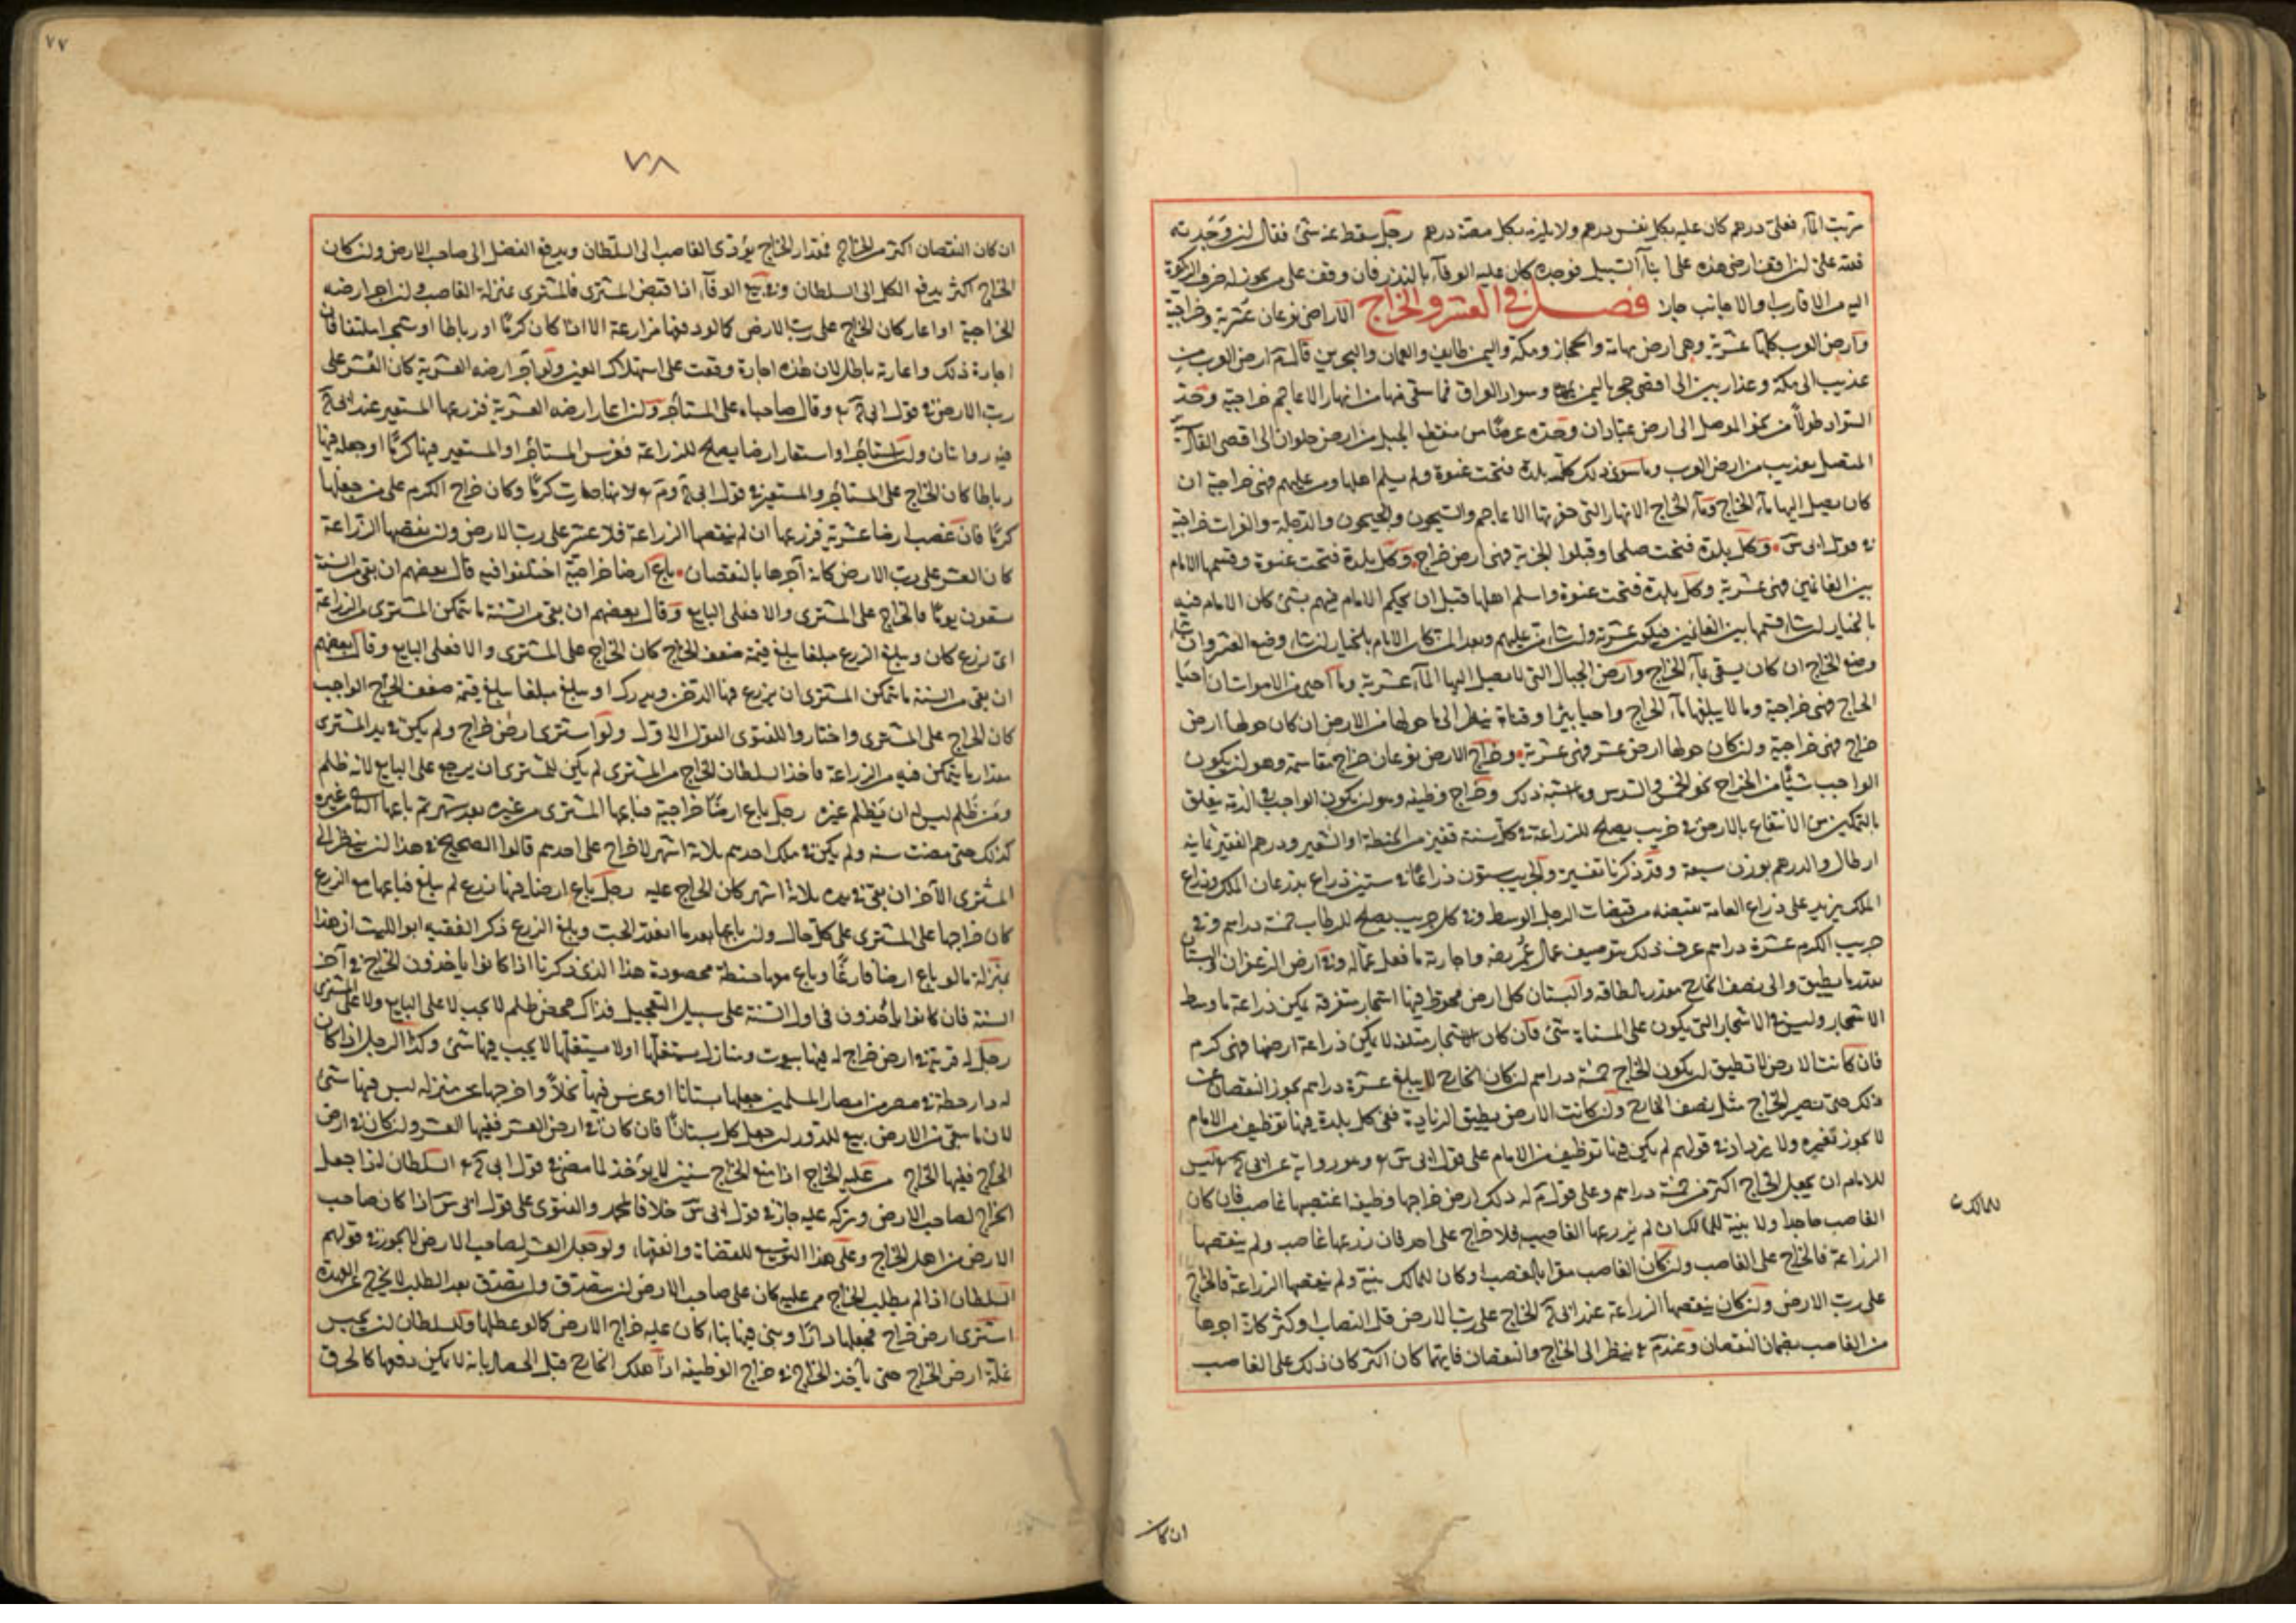 شربت الماء فعلي درهم كان عليه بكل نفس درهم ولا يلزمه بكل مصة درهم رجل سقط عنه شيء فقال لئن وجدته
فلله علي ان اقف ارضي هذه على ابناء السبيل فوجده كان عليه الوفاء بالنذر فان وقف على من يجوز له صرف الزكوة
اليه من الاقارب والاجانب جاز فصل في العشر والخراج الاراضي نوعان عشرية وخراجية
وارض العرب كلها عشرية وهي ارض تهامة والحجاز ومكة واليمن وطايف والعمان والبحرين قال ارض العرب من
عذيب الى مكة وعدن ابين الى اقصى حجر باليمن وسواد العراق فما سقي منها من انهار الاعاجم خراجية وحد
السواد طولا من تخوم الموصل الى ارض عبادان وحده عرضا من منقطع الجبل من ارض حلوان الى اقصى القادسية
المتصل بعذيب من ارض العرب وما سوى ذلك كل بلدة فتحت عنوة ولم يسلم اهلها ومن عليهم فهي خراجية ان
كان يصل اليها ماء الخراج وماء الخراج الانهار التي حفرتها الاعاجم والسيحون والجيحون والدجلة والفرات خراجية
في قول ابي س وكل بلدة فتحت صلحا وقبلوا الجزية فهي ارض خراج وكل بلدة فتحت عنوة وقسمها الامام
بين الغانمين فهي عشرية وكل بلدة فتحت عنوة واسلم اهلها قبل ان يحكم الامام فيهم بشيء كان الامام فيه
بالخيار ان شاء قسمها بين الغانمين فيكون عشرية وان شاء من عليهم وبعد المن كان الامام بالخيار ان شاء وضع العشر وان شاء
وضع الخراج ان كان يسقى بماء الخراج وارض الجبال التي لا يصل اليها الماء عشرية وما احيي من الاموات ان احيا
الخراج فهي خراجية وما لا يبلغها ماء الخراج واحيا بئرا او قناة ينظر الى ما حولها من الارض ان كان حولها ارض
خراج فهي خراجية وان كان حولها ارض عشر فهي عشرية وخراج الارض نوعان خراج مقاسمة وهو ان يكون
الواجب شيئا من الخراج نحو الخمس والسدس وما اشبه ذلك وخراج وظيفة وهو ان يكون الواجب في الذمة يتعلق
بالتمكن من الانتفاع بالارض في جريب يصلح للزراعة في كل سنة قفيز من الحنطة او الشعير ودرهم القفيز ثمانية
ارطال والدرهم بوزن سبعة وقد ذكرنا تفسيره والجريب ستون ذراعا في ستين ذراع بذرعان الملك وذراع
الملك يزيد على ذراع العامة بقبضة من قبضات الرجل الوسط وفي كل جريب يصلح للرطاب خمسة دراهم وفي
جريب الكرم عشرة دراهم عرف ذلك بتوصيف عمال عمر وفي ارض الزعفران والبستان
بقدر ما يطيق والى نصف الخارج مقدر بالطاقة والبستان كل ارض محوطة فيها اشجار متفرقة يمكن زراعة ما وسط
الاشجار وليس في الاشجار التي يكون على المسناة شيء فان كان الاشجار ملتفة لا يمكن زراعة ارضها فهي كرم
فان كانت الارض لا تطيق ان يكون الخراج خمسة دراهم ان كان الخارج لا يبلغ عشرة دراهم يجوز النقصان عن
ذلك حتى يصير الخراج مثل نصف الخارج وان كانت الارض يطيق الزيادة ففي كل بلدة فيها توظيف من الامام
لا يجوز تغييره ولا يزداد في قولهم لم يكن فيها توظيف من الامام على قول ابي س وهو رواية عن ابي ح ليس
للامام ان يجعل الخراج اكثر من خمسة دراهم وعلى قول م له ذلك ارض خراجها وظيفة اغتصبها غاصب فان كان
الغاصب جاحدا ولا بينة للمالك ان لم يزرعها الغاصب فلا خراج على احد فان زرعها غاصب ولم ينقصها
الزراعة فالخراج على الغاصب وان كان الغاصب مقرا بالغصب او كان للمالك بينة ولم ينقصها الزراعة فالخراج
على رب الارض وان كان ينقصها الزراعة عند ابي ح الخراج على رب الارض قل النقصان او كثر كانه اجرها
من الغاصب بضمان النقصان وعند م ينظر الى الخراج والنقصان فايهما كان اكثر كان ذلك على الغاصب
للمالك
ان كان
٧٧
٧٨
ان كان النقصان اكثر من الخراج فمقدار الخراج يؤدي الغاصب الى السلطان ويدفع الفضل الى صاحب الارض وان كان
الخراج اكثر يدفع الكل الى السلطان وفي بيع الوفاء اذا قبض المشتري فالمشتري بمنزلة الغاصب وان اجر ارضه
الخراجية او اعار كان الخراج على رب الارض كما لو دفعها مزارعة الا اذا كان كرما او رطابا او شجرا ملتفا فان
اجارة ذلك واعارته باطل لان هذه اجارة وقعت على استهلاك العين ولو اجر ارضه العشرية كان العشر على
رب الارض في قول ابي ح وقال صاحباه على المستأجر وان اعار ارضه العشرية فزرعها المستعير عند ابي ح
فيه روايتان وان استأجر او استعار ارضا يصلح للزراعة فغرس المستأجر او المستعير فيها كرما او جعل فيها
رطابا كان الخراج على المستأجر والمستعير في قول ابي ح وم لانها صارت كرما وكان خراج الكرم على من جعلها
كرما فان غصب ارضا عشرية فزرعها ان لم ينقصها الزراعة فلا عشر على رب الارض وان نقصها الزراعة
كان العشر على رب الارض كانه آجرها بالنقصان باع ارضا خراجية اختلفوا فيه قال بعضهم ان بقي من السنة
تسعون يوما فالخراج على المشتري والا فعلى البايع وقال بعضهم ان بقي من السنة ما يتمكن المشتري من الزراعة
اي زرع كان ويبلغ الزرع مبلغا يبلغ قيمته ضعف الخراج كان الخراج على المشتري والا فعلى البايع وقال بعضهم
ان بقي من السنة ما يتمكن المشتري ان يزرع فيها الدخن ويدرك او يبلغ مبلغا يبلغ قيمته ضعف الخراج الواجب
كان الخراج على المشتري واختاروا للفتوى القول الاول ولو اشترى ارض خراج ولم يكن في يد المشتري
مقدار ما يتمكن فيه من الزراعة فاخذ السلطان الخراج من المشتري لم يكن للمشتري ان يرجع على البايع لانه ظلم
ومن ظلم ليس له ان يظلم غيره رجل باع ارضا خراجية فباعها المشتري من غيره بعد شهر ثم باعها الثاني من غيره
كذلك حتى مضت سنة ولم يكن في ملك احدهم ثلاثة اشهر لا خراج على احدهم قالوا الصحيح في هذا ان ينظر الى
المشتري الآخر ان بقي في يده ثلاثة اشهر كان الخراج عليه رجل باع ارضا فيها زرع لم يبلغ فباعها مع الزرع
كان خراجها على المشتري على كل حال وان باعها بعد ما انعقد الحب وبلغ الزرع ذكر الفقيه ابو الليث ان هذا
بمنزلة ما لو باع ارضا فارغا وباع معها حنطة محصودة هذا الذي ذكرنا اذا كانوا يأخذون الخراج في آخر
السنة فان كانوا يأخذون في اول السنة على سبيل التعجيل فذاك محض ظلم لا يجب لا على البايع ولا على المشتري
رجل له قرية في ارض خراج له فيها بيوت ومنازل يستغلها او لا يستغلها لا يجب فيها شيء وكذا الرجل اذا كان
له دار خطة في مصر من امصار المسلمين جعلها بستانا او غرس فيها نخلا واخرجها عن منزله ليس فيها شيء
لان ما بقي من الارض بيع للدور ان جعل كل بستانا فان كان في ارض العشر ففيها العشر وان كان في ارض
الخراج ففيها الخراج من عليه الخراج اذا منع الخراج سنين لا يؤخذ لما مضى في قول ابي ح السلطان اذا جعل
الخراج لصاحب الارض وتركه عليه جاز في قول ابي س خلافا لمحمد والفتوى على قول ابي س اذا كان صاحب
الارض من اهل الخراج وعلى هذا التوسيع للقضاة والفقهاء ولو جعل العشر لصاحب الارض لا يجوز في قولهم
السلطان اذا لم يطلب الخراج ممن عليه كان على صاحب الارض ان يتصدق وان تصدق بعد الطلب لا يخرج عن العهدة
اشترى ارض خراج فجعلها دارا وبنى فيها بناء كان عليه خراج الارض كما لو عطلها وللسلطان ان يحبس
غلة ارض الخراج حتى يأخذ الخراج في خراج الوظيفة اذا هلك الخارج قبل الحصاد بآفة لا يمكن دفعها كالحرق